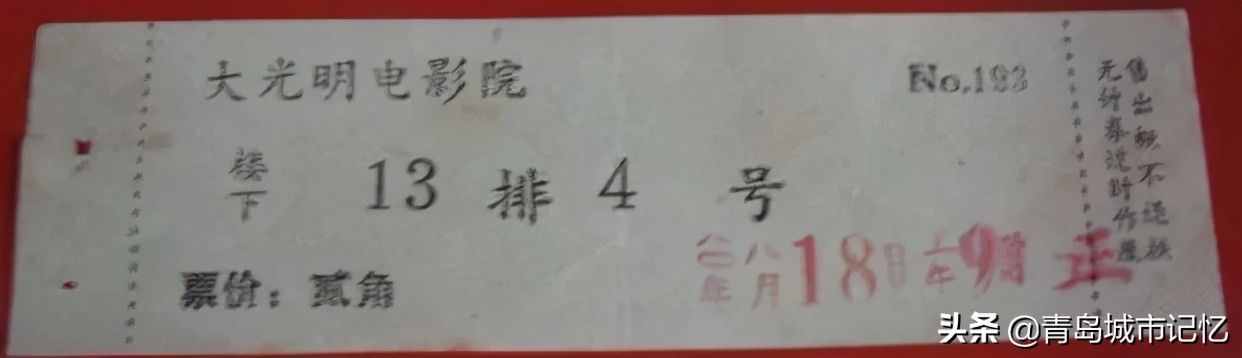 大光明电影院
No.193
楼下 13 排 4 号
票价：贰角
八〇年八月18日上午9时 正
售出概不退换
头条 @青岛城市记忆